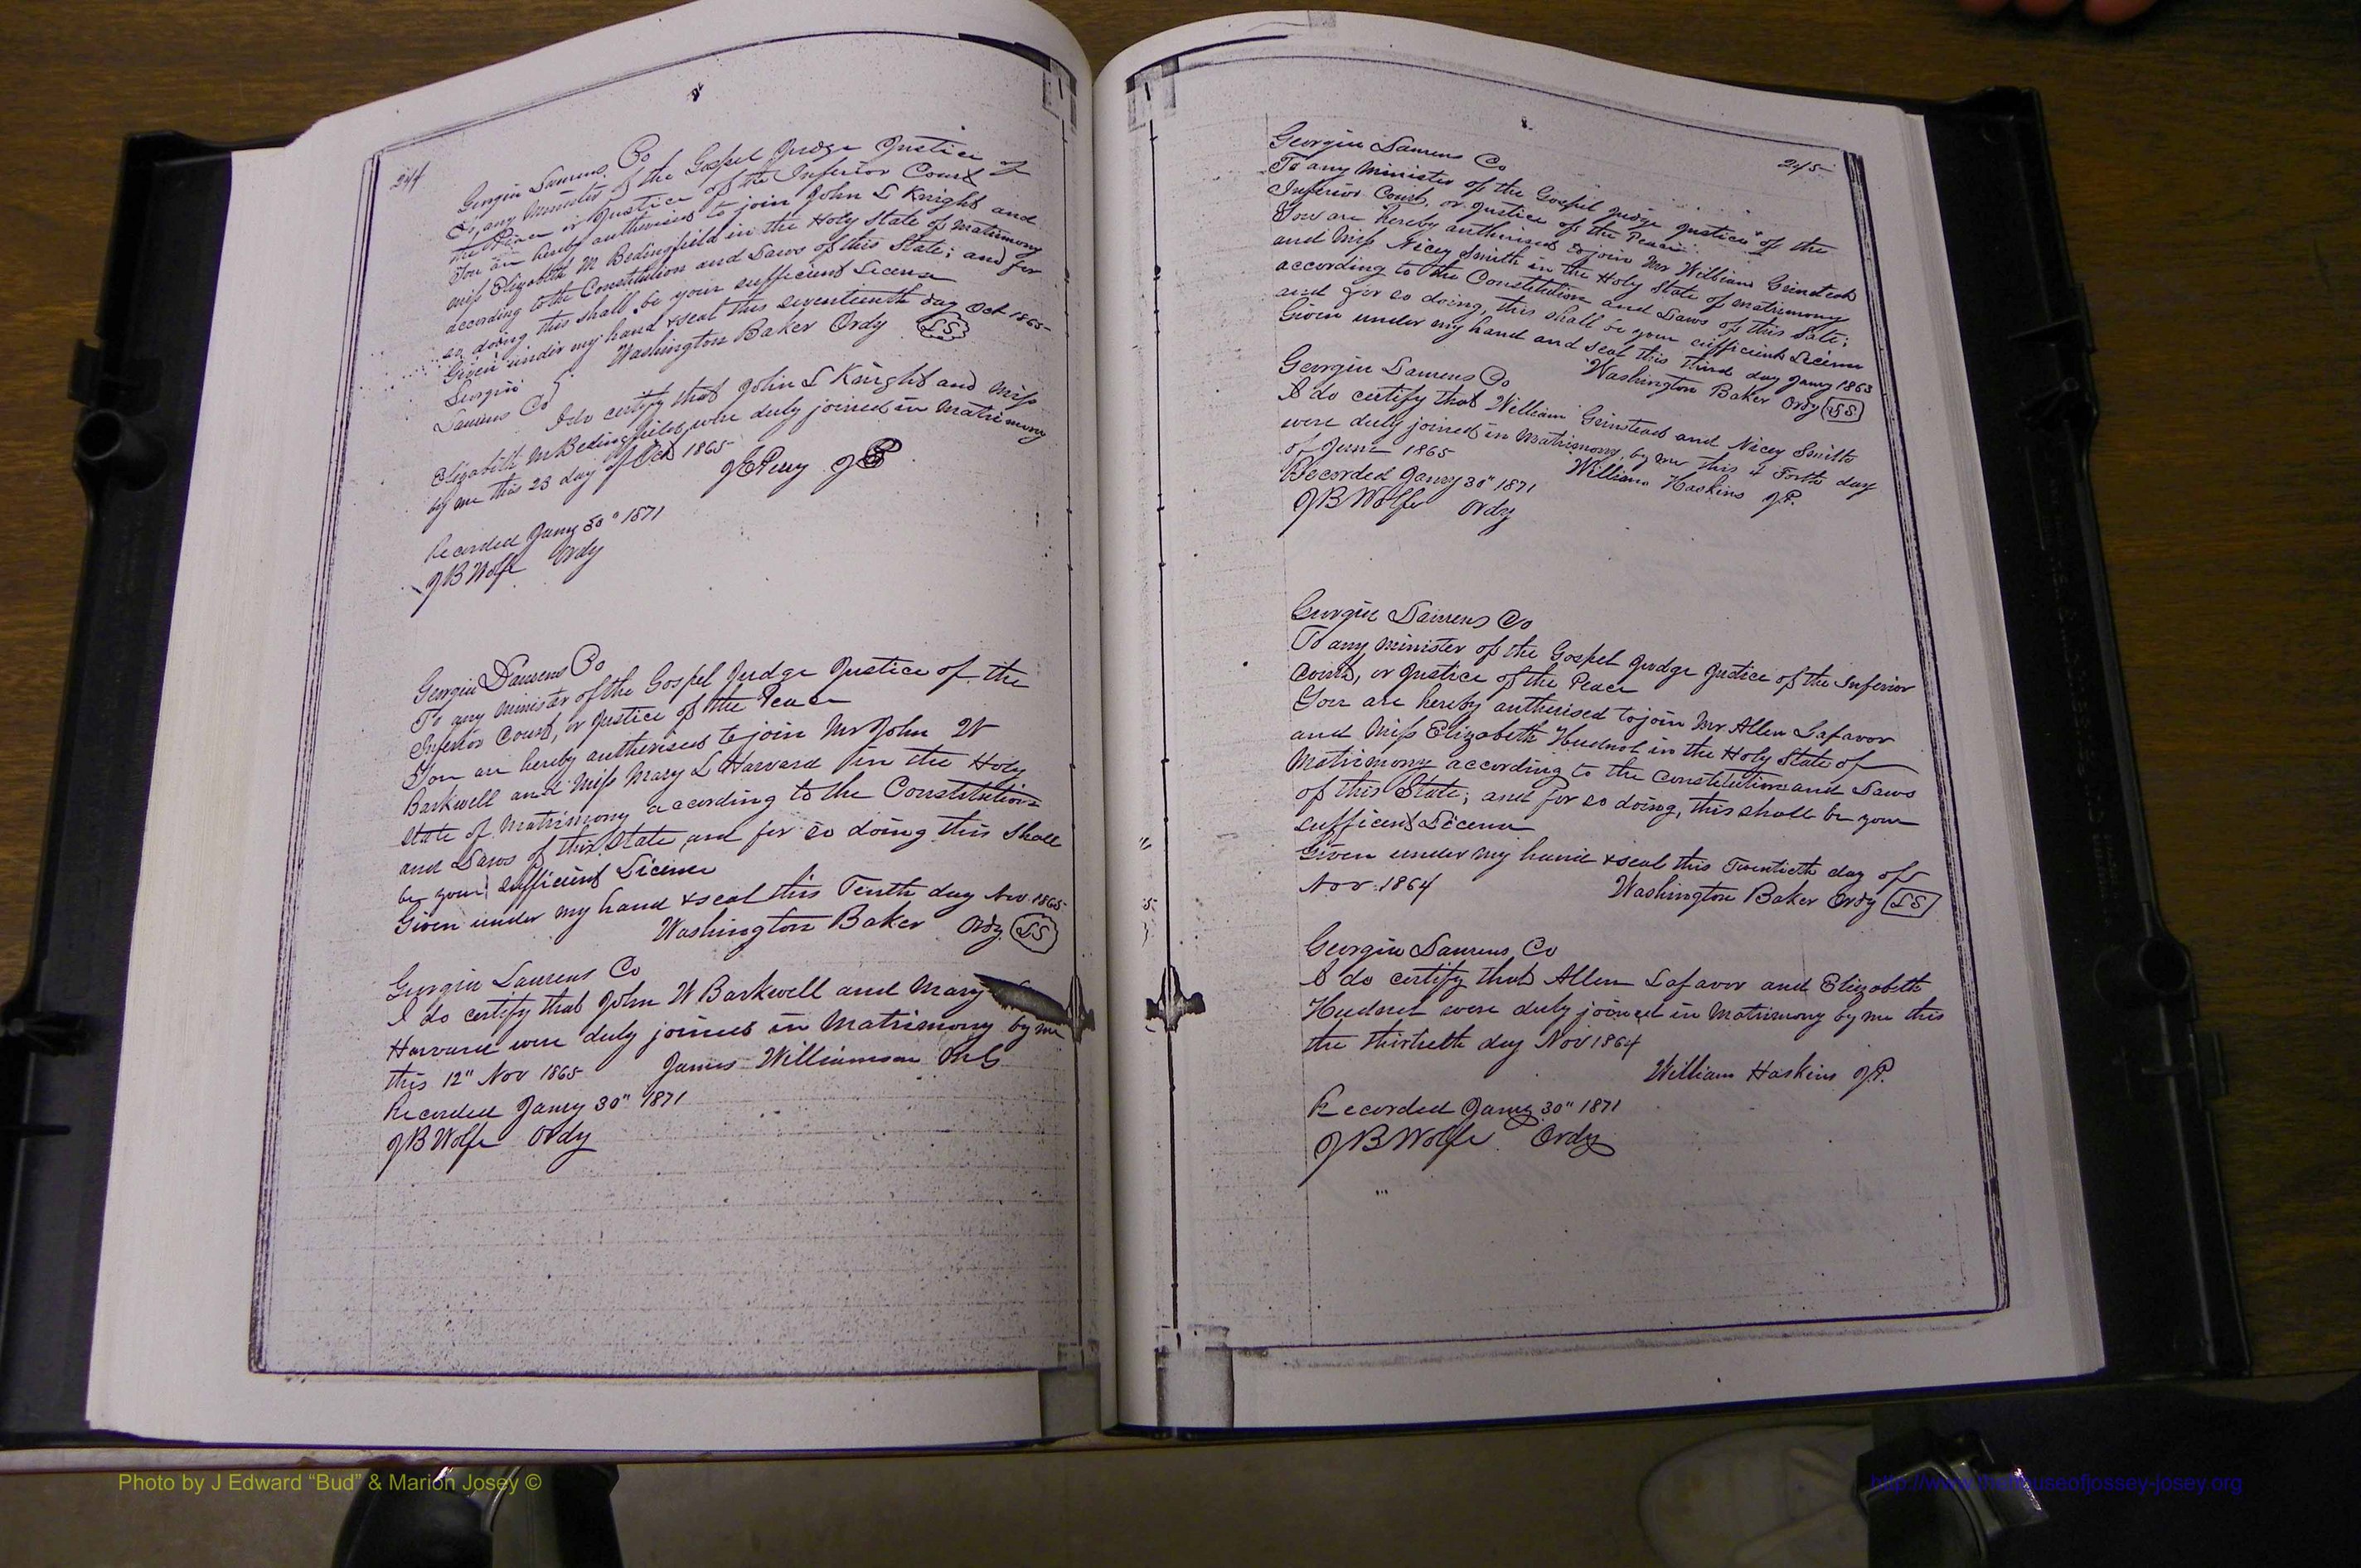 244
Georgia Laurens Co
To any Minister of the Gospel Judge Justice of
the Peace or Justice of the Inferior Court
You are hereby authorised to join John L Knight and
miss Elizabeth M Bedingfield in the Holy State of Matrimony
according to the Constitution and Laws of this State; and for
so doing this shall be your sufficient License
Given under my hand & seal this seventeenth day Oct 1865
Washington Baker Ordy LS
Georgia
Laurens Co
I do certify that John L Knight and Miss
Elizabeth M Bedingfield were duly joined in Matrimony
by me this 23 day of Oct 1865
J E Perry JP
Recorded Jany 30" 1871
J B Wolfe Ordy
Georgia Laurens Co
To any Minister of the Gospel Judge Justice of the
Inferior Court, or Justice of the Peace
You are hereby authorised to join Mr John W
Barkwell and Miss Mary L Harvard in the Holy
State of Matrimony according to the Constitution
and Laws of this State and for so doing this shall
be your sufficient License
Given under my hand & seal this Tenth day Nov 1865
Washington Baker Ordy LS
Georgia Laurens Co
I do certify that John W Barkwell and Mary
Harvard were duly joined in Matrimony by me
this 12" Nov 1865 James Williamson M G
Recorded Jany 30" 1871
J B Wolfe Ordy
245
Georgia Laurens Co
To any Minister of the Gospel Judge Justice of the
Inferior Court, or Justice of the Peace
You are hereby authorised to join Mr William Grinstead
and Miss Nicey Smith in the Holy State of Matrimony
according to the Constitution and Laws of this State;
and for so doing, this shall be your sufficient License
Given under my hand and seal this third day Jany 1863
Washington Baker Ordy LS
Georgia Laurens Co
I do certify that William Grinstead and Nicey Smith
were duly joined in Matrimony, by me this 4 Forth day
of June 1865
William Haskins J.P.
Recorded Jany 30" 1871
J B Wolfe Ordy
Georgia Laurens Co
To any Minister of the Gospel Judge Justice of the Inferior
Court, or Justice of the Peace
You are hereby authorised to join Mr Allen Lafavor
and Miss Elizabeth Hudnol in the Holy State of
Matrimony according to the Constitution and Laws
of this State; and for so doing, this shall be your
sufficient License
Given under my hand & seal this Twentieth day of
Nov 1864
Washington Baker Ordy LS
Georgia Laurens Co
I do certify that Allen Lafavor and Elizabeth
Hudnol were duly joined in Matrimony by me this
the thirtieth day Nov 1864
William Haskins J.P.
Recorded Jany 30" 1871
J B Wolfe Ordy
Photo by J Edward “Bud” & Marion Josey ©
http://www.thehouseofjossey-josey.org